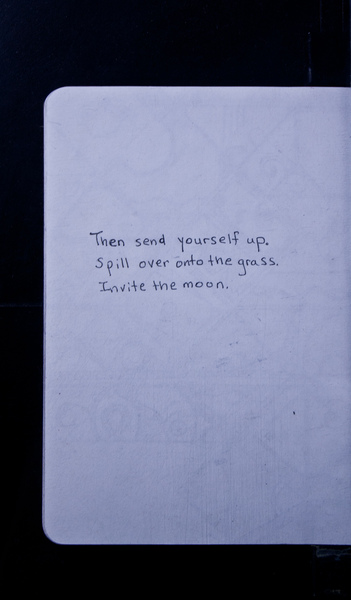 Then send yourself up.
Spill over onto the grass.
Invite the moon.